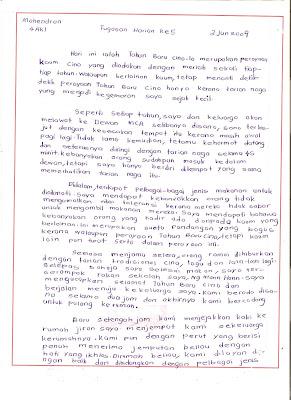 Mahendran
4AK1
Tugasan Harian RE5
2 Jun 2009
Hari ini ialah Tahun Baru Cina. Ia merupakan perayaan
kaum Cina yang diadakan dengan meriah sekali tiap-
tiap tahun. Walaupun berlainan kaum, tetap menanti detik-
detik perayaan Tahun Baru Cina hanya kerana tarian naga
yang menjadi kegemaran saya sejak kecil.
Seperti setiap tahun, saya dan keluarga akan
melawat ke Dewan MCA. Setibanya disana, kami terke-
jut dengan kesesakan tempat itu kerana masih awal
pagi lagi. Tidak lama kemudian, tetamu kehormat datang
dan seterusnya diiringi dengan tarian naga selama 45
minit. Kebanyakan orang sudahpun masuk kedalam
dewan, tetapi saya hanya berdiri ditempat yang sama
memerhatikan tarian naga itu.
Didalam, terdapat pelbagai-bagai jenis makanan untuk
dinikmati. Saya mendapati kebanyakkan orang tidak
mengamalkan nilai toleransi kerana mereka tidak sabar
untuk mengambil makanan mereka. Saya mendapati bahawa
kebanyakan orang yang hadir ada daripada kaum yang
berlainan. Ini merupakan suatu pandangan yang bagus
kerana walaupun perayaan Tahun Baru Cina, tetapi kaum
lain pun turut serta dalam perayaan ini.
Semasa menjamu selera, orang ramai dihiburkan
dengan tarian tradisional cina, lagu dan lain-lain lagi.
Selepas sahaja saya habiskan makan, saya ter-
serempak rakan sekolah saya, Ng Huan Huan. Saya
mengucapkan selamat Tahun Baru Cina dan
berjalan menuju kekeluarga saya. Kami berada disa-
na selama dua jam dan akhirnya kami bercadang
untuk pulang kerumah.
Baru setengah jam kami menjejakkan kaki ke
rumah, jiran saya menjemput kami sekeluarga
kerumahnya. Kami pun dengan perut yang berisi
penuh menerima jemputan beliau dengan
hati yang ikhlas. Dirumah beliau, kami dilayan de-
ngan baik dan dihidangkan dengan pelbagai jenis